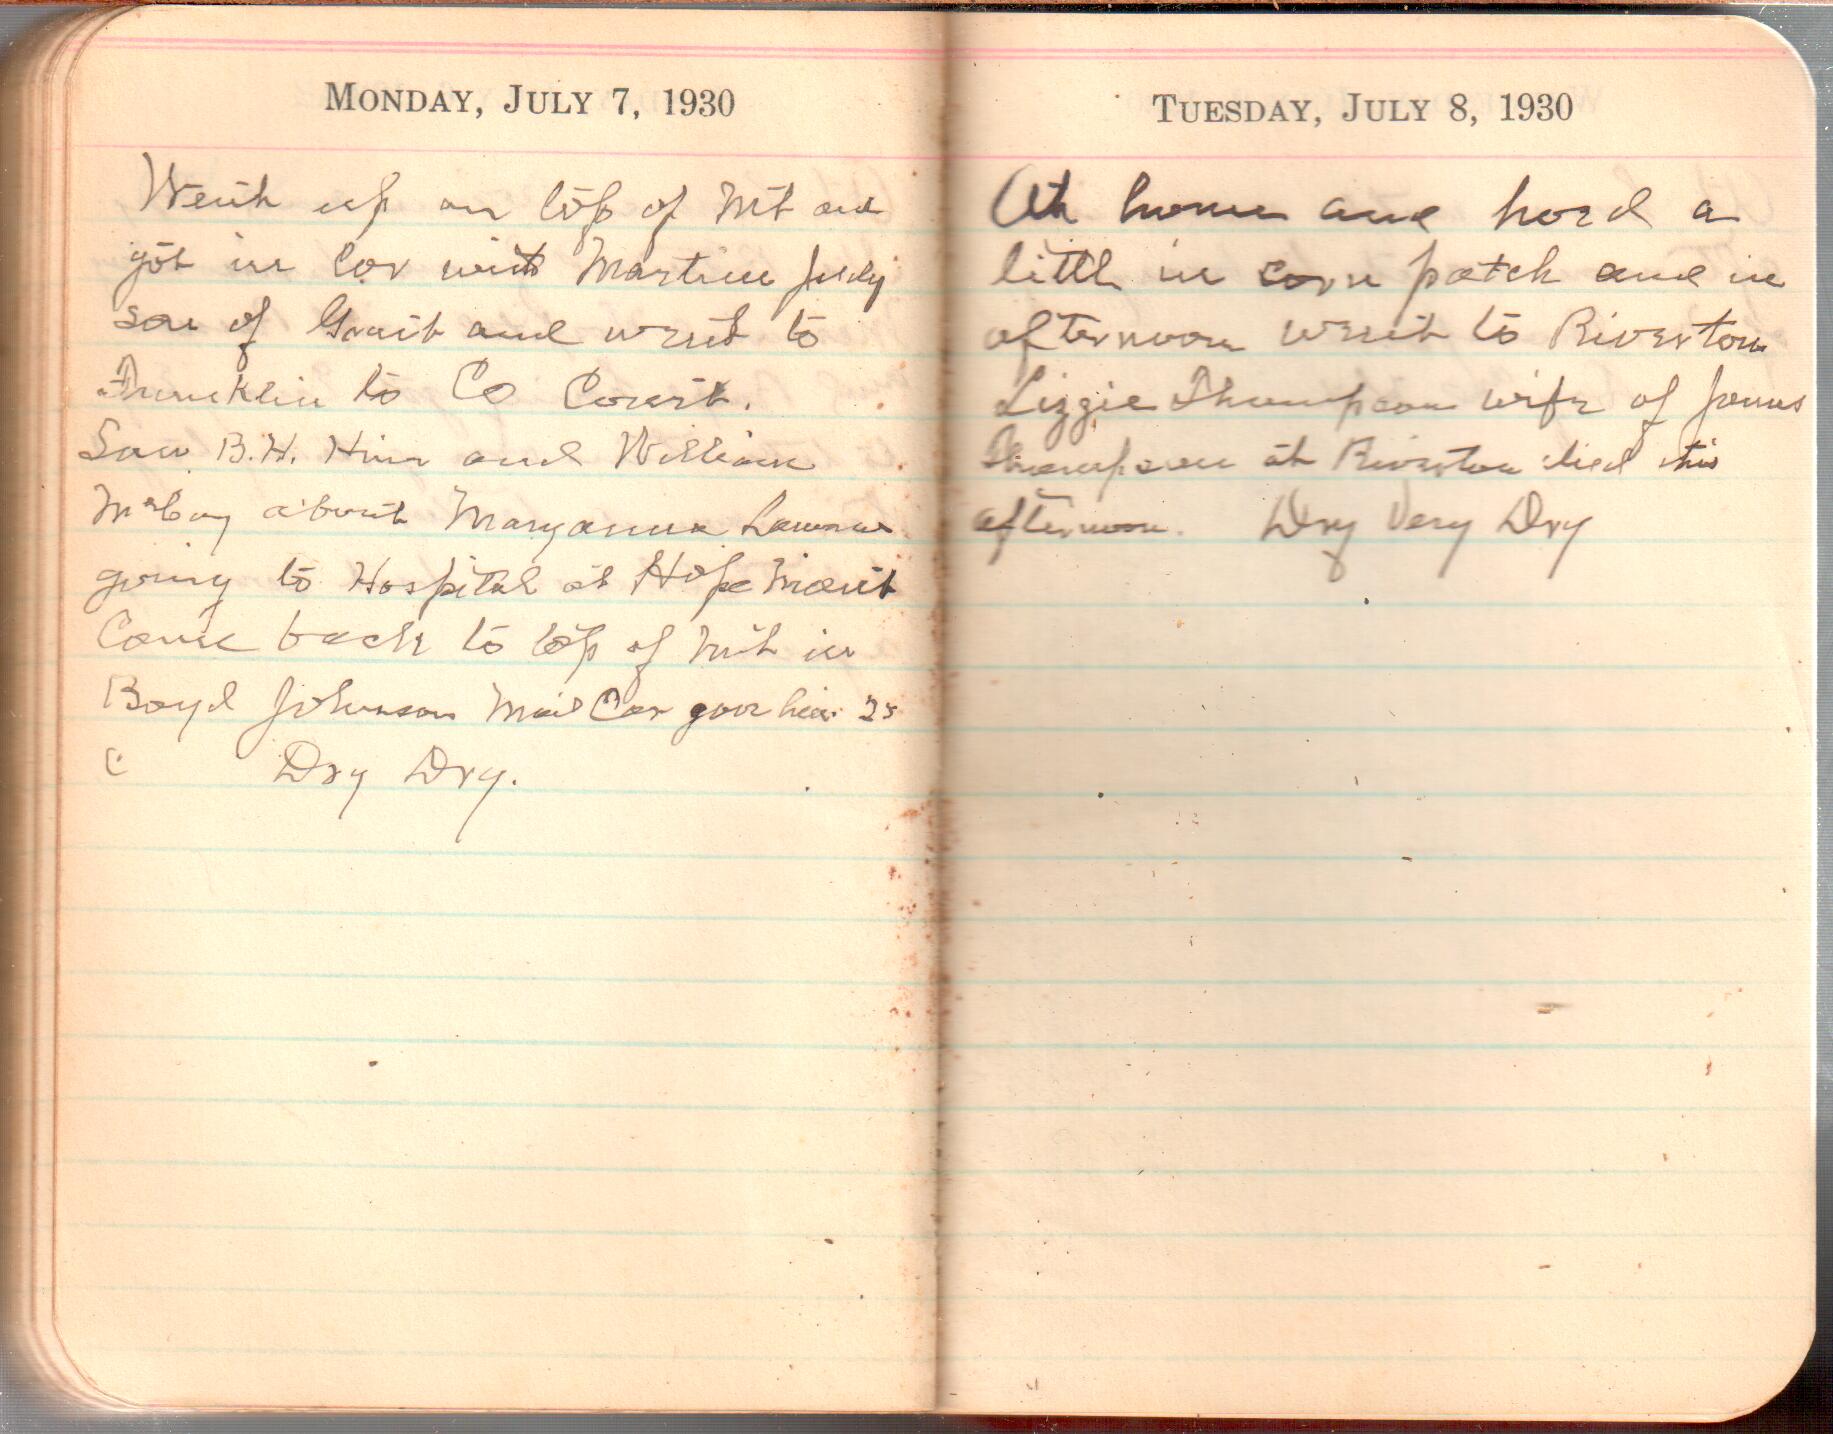 MONDAY, JULY 7, 1930
Went up on top of Mt and
got in car with Martin Judy
son of Grant and went to
Franklin to Co Court.
Saw B.H. Hiner and William
McCoy about Maryanna
going to Hospital at Hopemont
Came back to top of Mt in
Boyd Johnson Mail Car gave him 25
c Dry Dry.
TUESDAY, JULY 8, 1930
At home and hoed a
little in corn patch and in
afternoon went to Riverton
Lizzie Thompson wife of
Thompson at Riverton died this
afternoon. Dry Very Dry